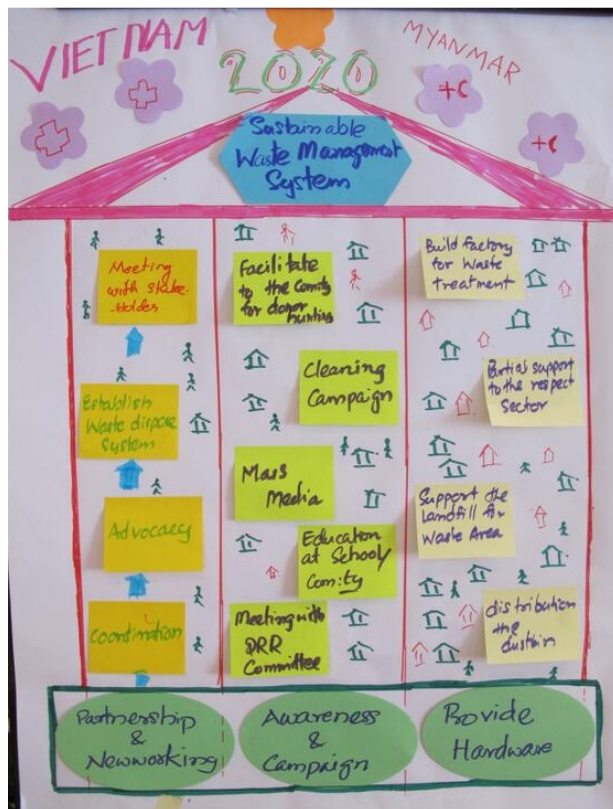 VIETNAM
MYANMAR
2020
Sustainable
Waste Management
System
Meeting
with stake-
Holder
Establish
Waste dispose
System
Advocacy
Coordination
Facilitate
to the Comity
for donor
hunting
Cleaning
Campaign
Mass
Media
Education
at School/
Comity
Meeting with
DRR
Committee
Build factory
for Waste
treatment
Partial support
to the respect
Sector
Support the
Landfill for
Waste Area
distribution
the
dustbin
Partnership
&
Newworking
Awareness
&
Campaign
Provide
Hardware